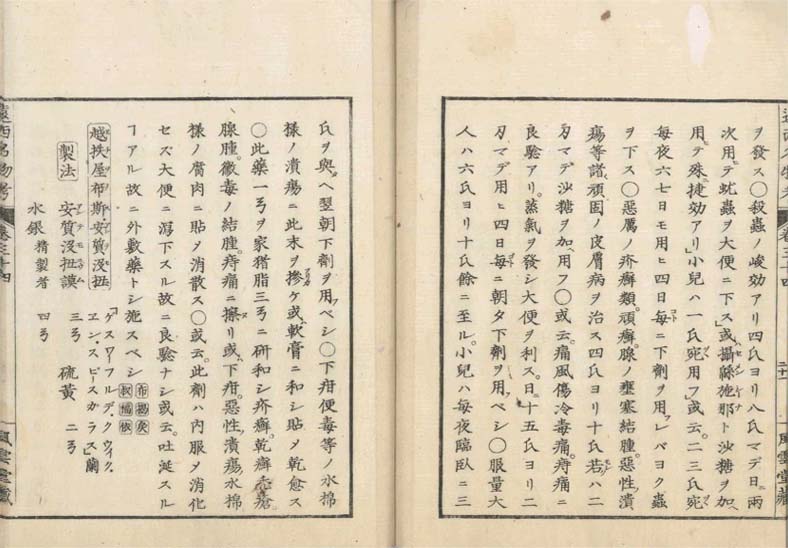 ヲ發ス○殺蟲ノ峻効アリ四氏ヨリ八氏マデ日ニ兩
次用テ蚘蟲ヲ大便ニ下ス」或攝緜施那ト沙糖ヲ加
用テ殊捷効アリ」小兒ハ一氏宛用フ」或云。二三氏宛
每夜六七日モ用ヒ四日每ニ下劑ヲ用フレバヨク蟲
ヲ下ス○惡厲ノ疥癬類。頑癬。腺ノ壅塞結腫。惡性潰
瘍等諸頑固ノ皮膚病ヲ治ス四氏ヨリ十氏若ハ二
刄マデ沙糖ヲ加ヘ用フ○或云。痛風傷冷毒痛。痔痛ニ
良驗アリ。蒸氣ヲ發シ大便ヲ利ス。日ニ十五氏ヨリ二
刄マデ用ヒ四日每ニ朝タ下劑ヲ用フベシ○服量大
人ハ六氏ヨリ十氏餘ニ至ル。小兒ハ每夜臨臥ニ三
二十一
風雲堂藏
氏ヲ與ヘ翌朝下劑ヲ用フベシ○下疳便毒等ノ水棉
樣ノ潰瘍ニ此末ヲ摻ケ或軟膏ニ和シ貼メ乾愈ス
○此藥一ヲ家猪脂三ニ研和シ疥癬。乾癬
腺腫。黴毒ノ結腫。痔痛ニ擦リ或下疳。惡性潰瘍水棉
樣ノ腐肉ニ貼メ消散ス○或云。此劑ハ内服メ消化
セズ大便ニ瀉下スル故ニ良驗ナシ或云。吐涎スル
アル故ニ外敷藥トシ施スベシ
越扶屋布斯安質沒扭
製法 安質沒扭謨 三 硫黄 二
水銀 精製者 四
遠西名物考
卷三十四
風雲堂藏